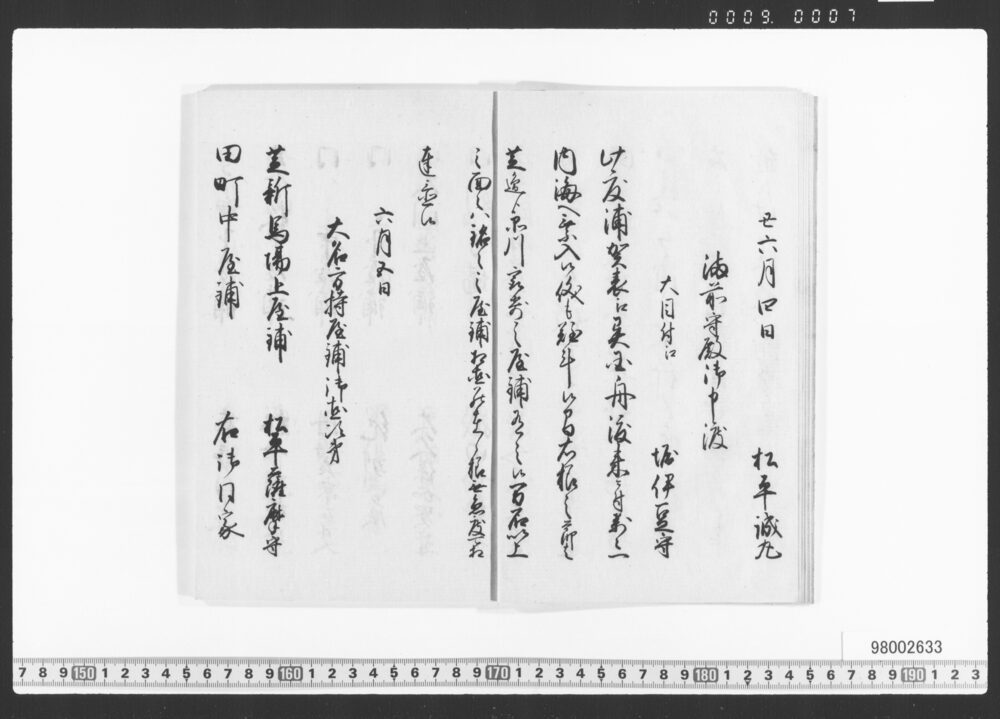 0009. 0007
丑六月四日
松平誠丸
備前守殿御申渡
大目付江
堀伊豆守
此度浦賀表江異国舟渡来ニ付万々一
内海へ乗入候儀も難斗候間右様之節は
芝邊ゟ品川最寄ニ屋鋪有之候万石以上
之面々ハ銘々之屋鋪相固
達至候
六月五日
大名方持屋鋪御固次第
芝新馬場上屋鋪
松平薩摩守
田町中屋鋪
右御同家
98002633
7 8 9 150 1 2 3 4 5 6 7 8 9 160 1 2 3 4 5 6 7 8 9 170 1 2 3 4 5 6 7 8 9 180 1 2 3 4 5 6 7 8 9 190 1 2 3